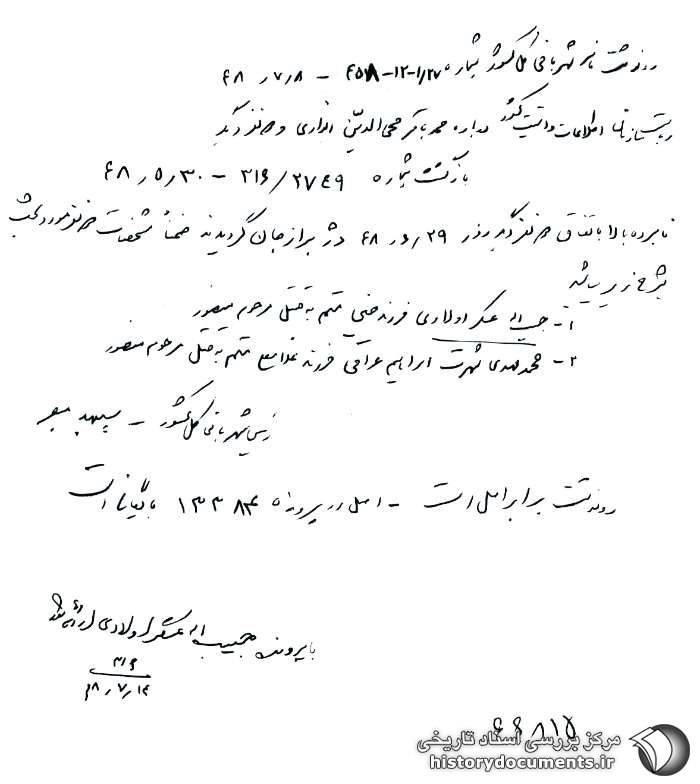 رونوشت نامه شهربانی کل کشور شماره ۱/۲۷-۱۲-۴۵۷۸ - ۴۸/۷/۸
ریاست سازمان اطلاعات و امنیت کشور درباره محمدباقر محی‌الدین انواری و ۲ نفر دیگر
بازگشت شماره ۳۱۶/۲۷۴۹ - ۴۸/۵/۳۰
نامبرده بالا باتفاق ۲ نفر دیگر روز ۴۸/۶/۲۹ دژ برازجان گردیدند ضمناً مشخصات ۲ نفر مورد بحث
بشرح زیر میباشد
۱- حبیب اله عسگراولادی فرزند حسین متهم به قتل مرحوم منصور
۲- محمدمهدی شهرت ابراهیم عراقی فرزند غلامعلی متهم به قتل مرحوم منصور
رئیس شهربانی کل کشور - سپهبد مبصر
رونوشت برابر اصل است - اصل در پرونده ۱۳۳۸۴ بایگانی است
با پرونده حبیب اله عسگراولادی ارائه شود
۳۱۶
۴۸/۷/۱۴
مرکز بررسی اسناد تاریخی
historydocuments.ir